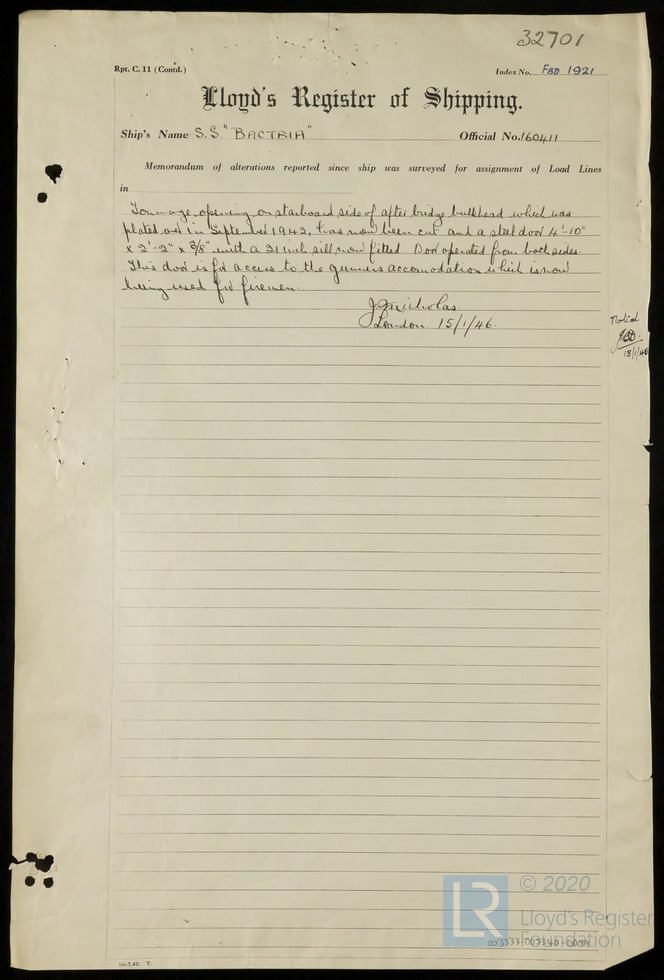 32701
Rpt. C. 11 (Contd.)
Index No. FBD 1921
Lloyd's Register of Shipping.
Ship's Name S.S "BACTRIA" Official No. 160411
Memorandum of alterations reported since ship was surveyed for assignment of Load Lines
in
Tonnage opening on starboard side of after bridge bulkhead which was
plated over in September 1942, has now been cut and a steel door 4'-10"
x 2'-2" x 3/8" with a 21 inch sill now fitted Door operated from both sides.
This door is for access to the gunners accomodation which is now
being used for firemen.
J. Nicholas
London. 15/1/46.
Noted
18/1/46
5m.7.42. T.
© 2020
LR
Lloyd's Register
Foundation
003333-003340-0059